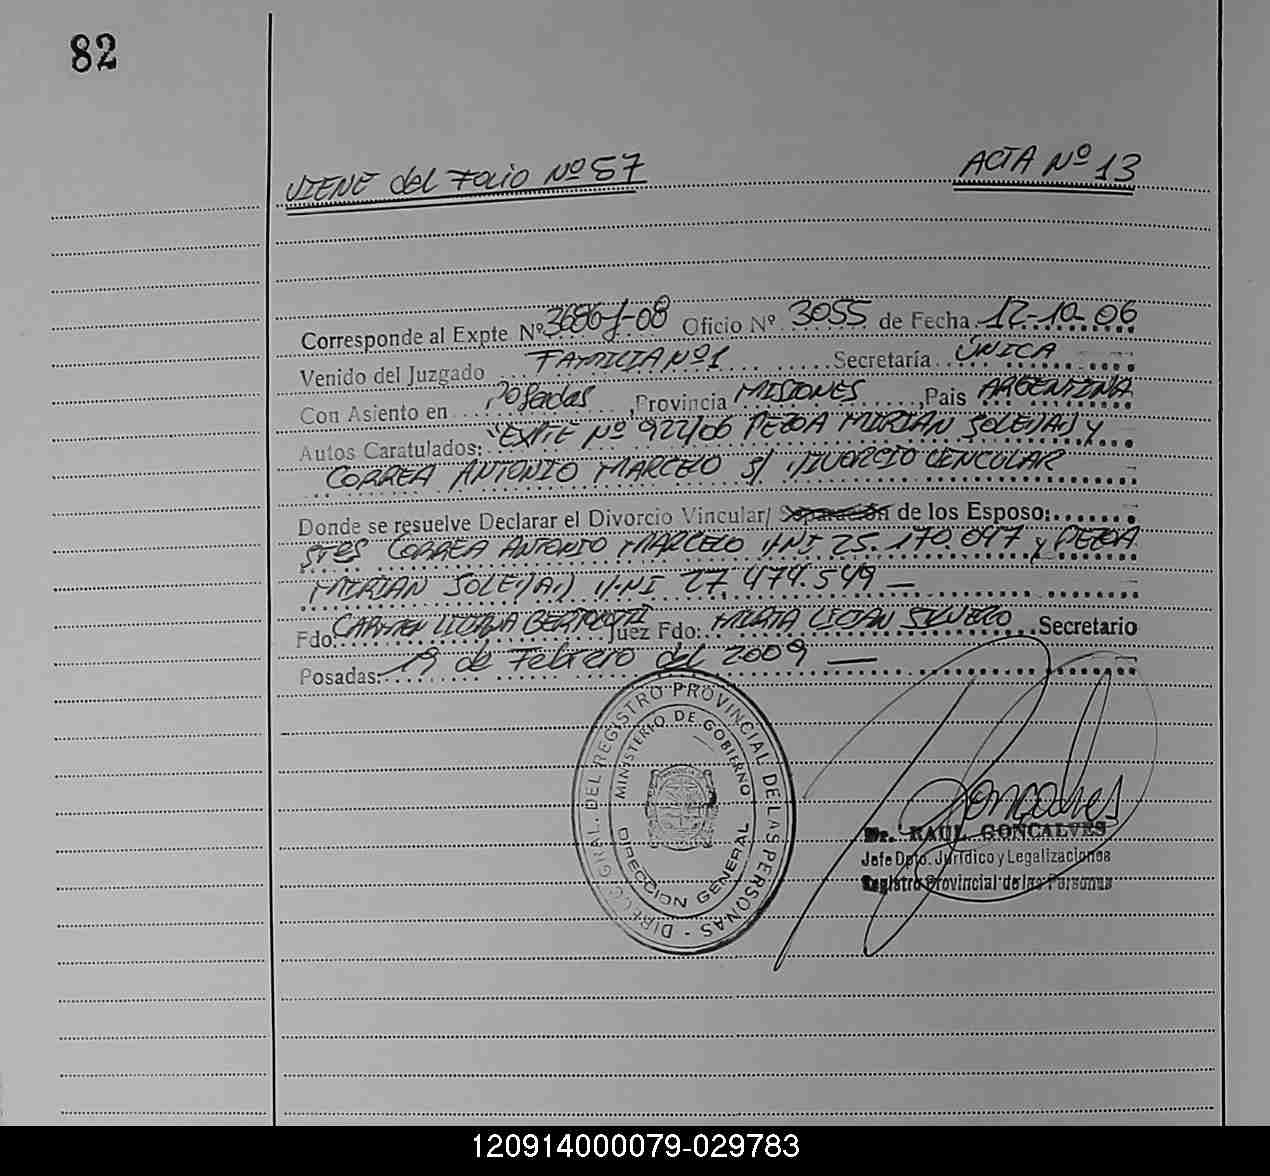 82
VIENE del FOLIO Nº 57 ACTA Nº 13
Corresponde al Expte Nº 3686-J-08 Oficio Nº 3055 de Fecha 12-10-06
Venido del Juzgado FAMILIA Nº1 Secretaría ÚNICA
Con Asiento en Posadas, Provincia MISIONES, Pais ARGENTINA
Autos Caratulados: "EXPTE Nº 922/06 PEZOA MIRIAN SOLEDAD y
CORREA ANTONIO MARCELO S/ DIVORCIO VINCULAR
Donde se resuelve Declarar el Divorcio Vincular/ Separación de los Esposo:
SRES CORREA ANTONIO MARCELO DNI 25.170.047 y PEZOA
MIRIAN SOLEDAD DNI 27.474.549 —
Fdo: CARMEN LILIANA Juez Fdo: MIRTA LILIAN SILVERO Secretario
Posadas: 19 de Febrero del 2009 —
DIRECC. GRAL. DEL REGISTRO PROVINCIAL DE LAS PERSONAS -
MINISTERIO DE GOBIERNO
DIRECCION GENERAL
Goncalves
Dr. RAUL GONCALVES
Jefe Dpto. Jurídico y Legalizaciones
Registro Provincial de las Personas
120914000079-029783